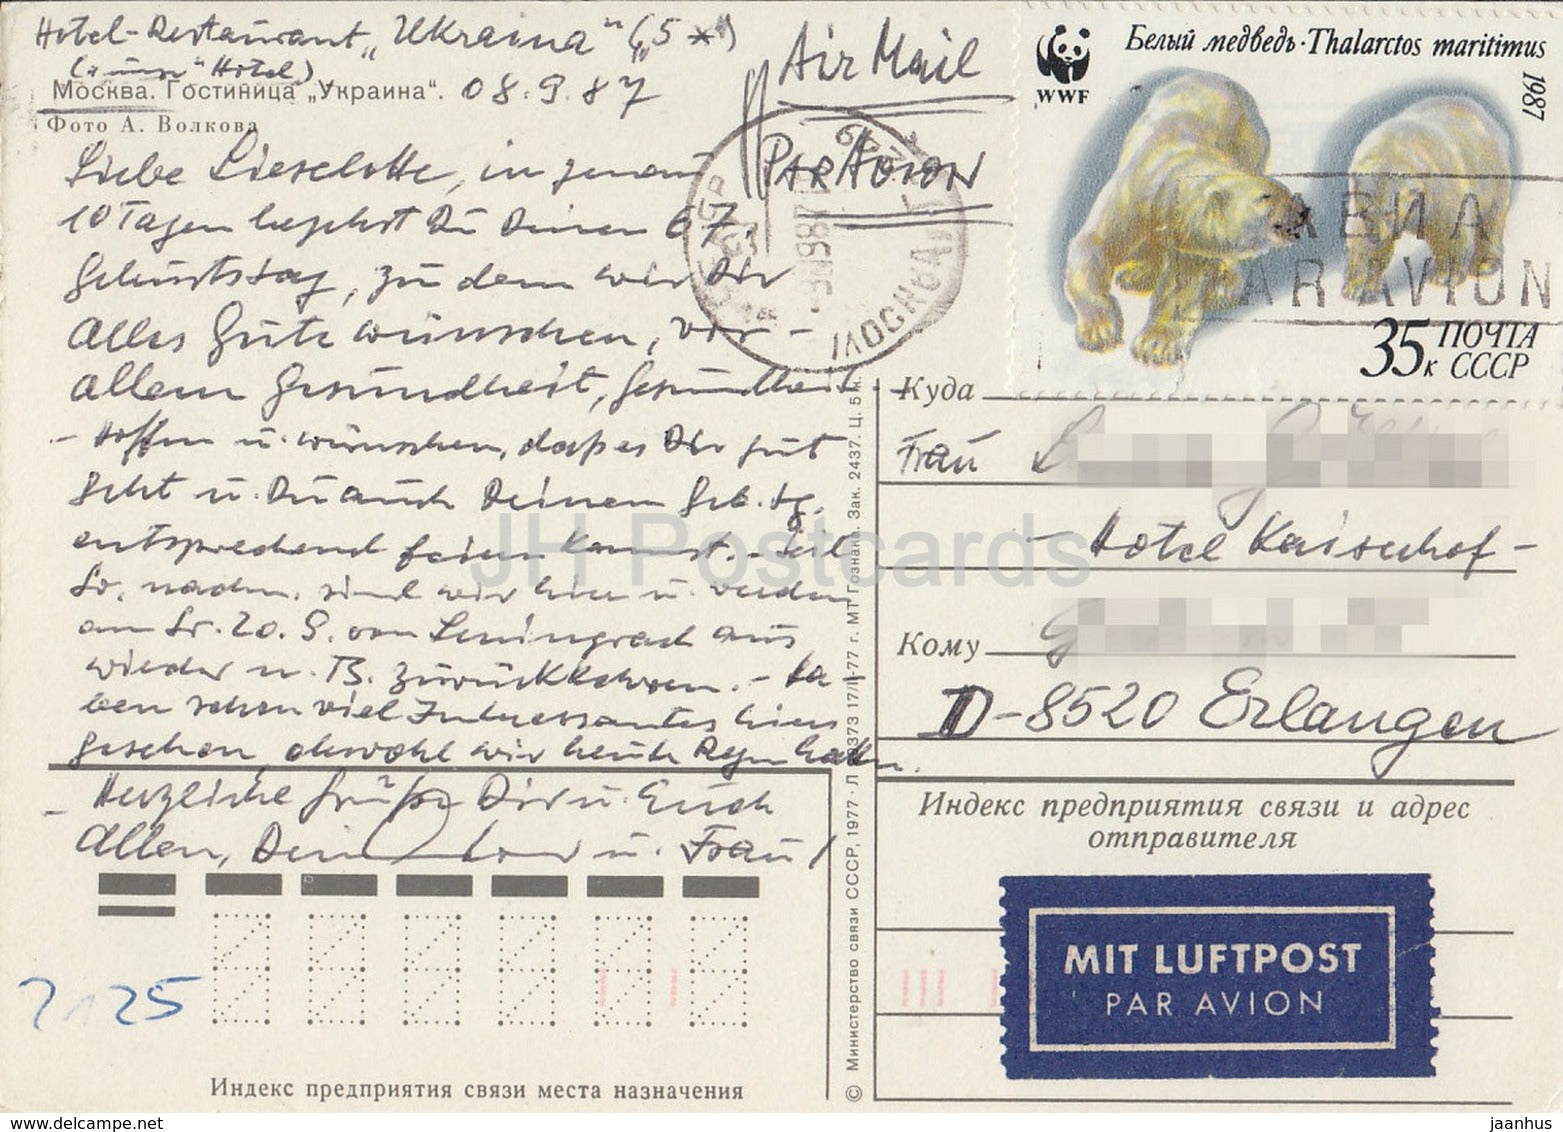 Hotel-Restaurant „Ukraina“ („5*“)
(„unser“ Hotel)
Москва. Гостиница „Украина“. 08.9.87
Фото А. Волкова
Air Mail
PAR AVION
Liebe Lieselotte, in genau
10 Tagen begehst Du Deinen 67.
Geburtstag, zu dem wir Dir
alles Gute wünschen, vor-
allem Gesundheit, Gesundheit.
- Hoffen u. wünschen, daß es Dir gut
geht u. Du auch Deinen Geb.tg.
entsprechend feiern kannst. - Seit
So. nachm. sind wir hier u. werden
am So. 20.9. von Leningrad aus
wieder n. B. zurückkehren. - Ha-
ben schon viel Interessantes hier
gesehen, obwohl wir heute Regen hatten.
- Herzliche Grüße Dir u. Euch
Allen, Dein u. Frau!
2125
Индекс предприятия связи места назначения
© Министерство связи СССР, 1977. Л 37373 17/II-77 г. МТ Гознака. Зак. 2437. Ц. 5 к.
WWF
Белый медведь · Thalarctos maritimus
1987
35к ПОЧТА
СССР
АВИА
PAR AVION
МОСКВА
СССР
Куда
Frau
- Hotel Kaiserhof -
Кому
D-8520 Erlangen
Индекс предприятия связи и адрес
отправителя
MIT LUFTPOST
PAR AVION
JH Postcards
www.delcampe.net
jaanhus